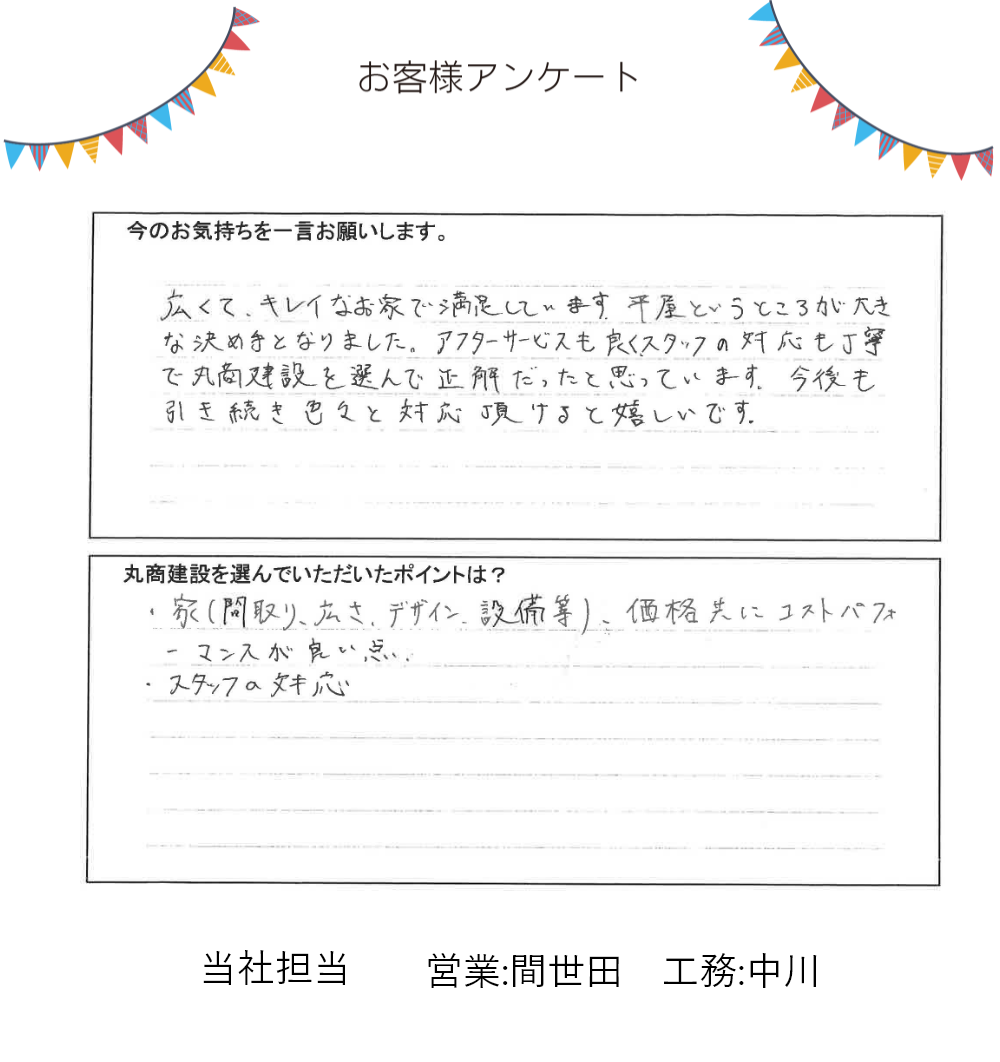 お客様アンケート
今のお気持ちを一言お願いします。
広くて、キレイなお家で満足しています。平屋というところが大き
な決め手となりました。アフターサービスも良くスタッフの対応も丁寧
で丸商建設を選んで正解だったと思っています。今後も
引き続き色々と対応頂けると嬉しいです。
丸商建設を選んでいただいたポイントは?
・家(間取り、広さ、デザイン、設備等)、価格共にコストパフォ
ーマンスが良い点。
・スタッフの対応
当社担当 営業:間世田 工務:中川